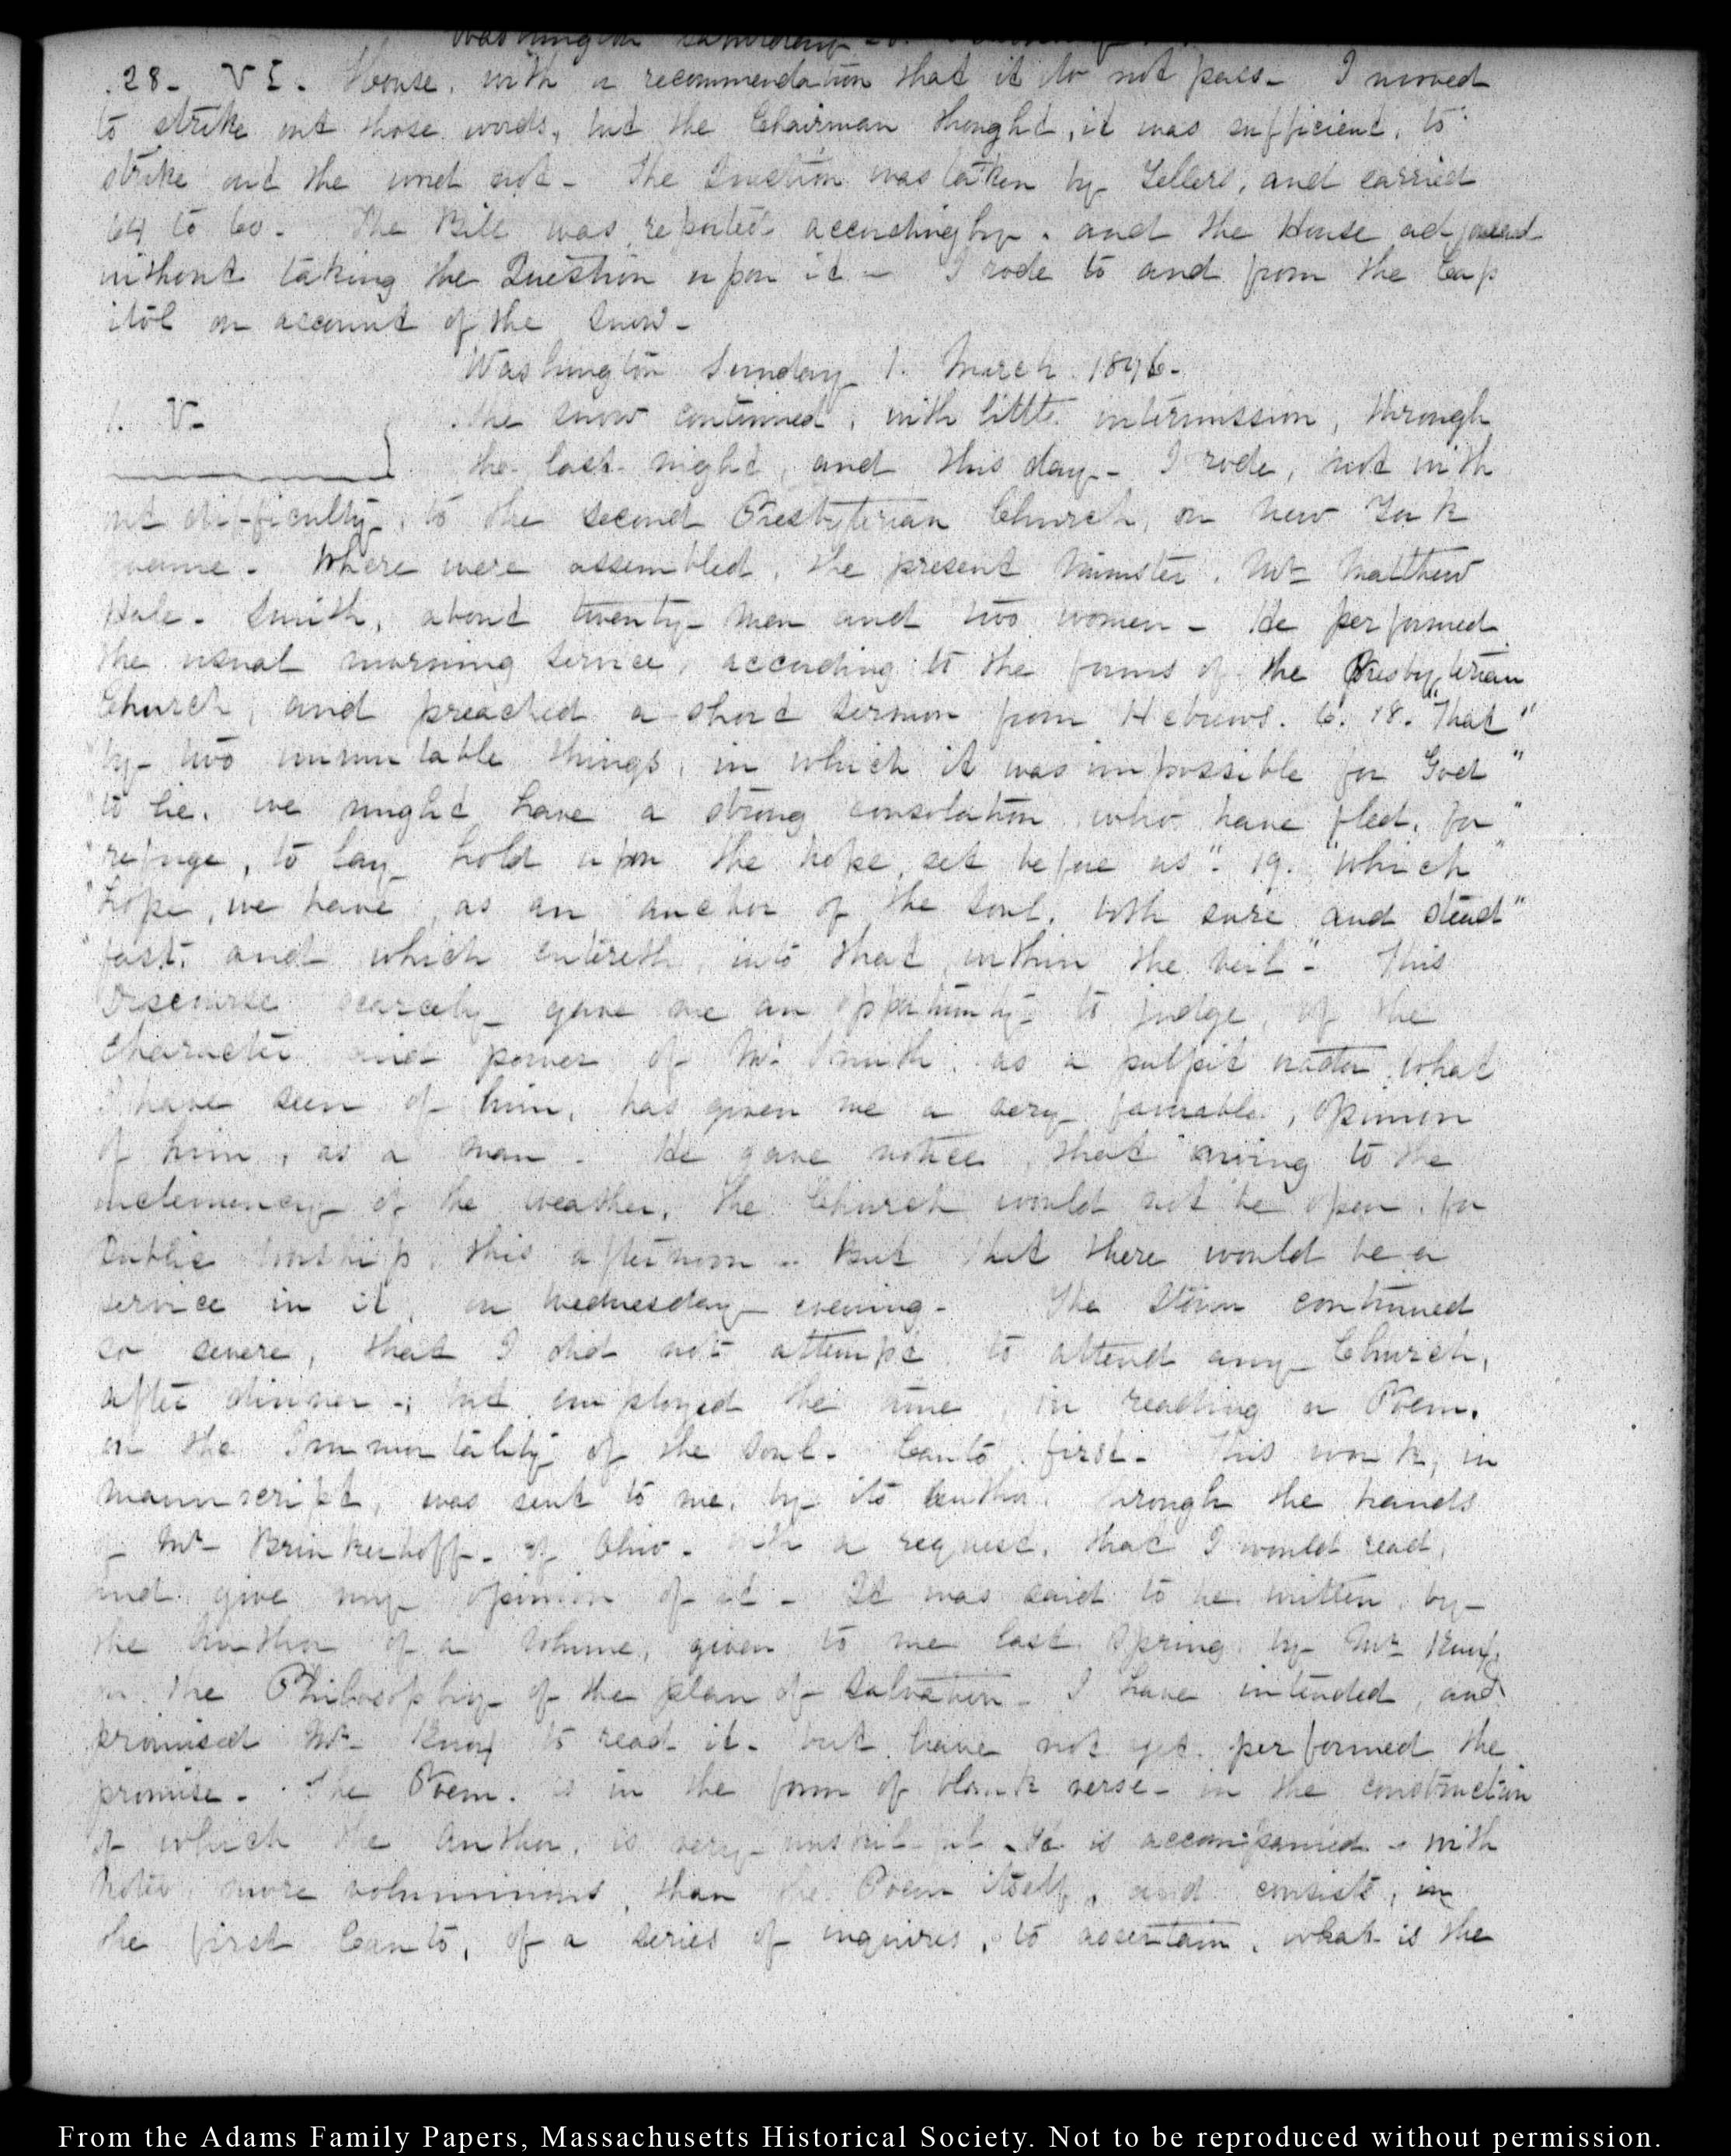 Washington Saturday
28. VI. House, with a recommendation that it do not pass. I moved
to strike out those words, but the Chairman thought, it was sufficient, to
strike out the word not. The Question was taken by Tellers, and carried
64 to 60. The Bill was reported accordingly, and the House adjourned
without taking the Question upon it. I rode to and from the Cap
itol on account of the Snow.
Washington Sunday 1. March 1846.
1. V. The snow continued, with little intermission, through
the last night, and this day. I rode, not with
out difficulty, to the second Presbyterian Church, on New York
Avenue. Where were assembled, the present Minister, Mr Matthew
Hale Smith, about twenty men and two women. He performed
the usual morning service, according to the forms of the Presbyterian
Church, and preached a short sermon from Hebrews. 6. 18. "That"
"by two immutable things, in which it was impossible for God"
"to lie, we might have a strong consolation who have fled, for"
"refuge, to lay hold upon the hope set before us". 19. "Which"
"hope, we have, as an anchor of the Soul, both sure and stead"
"fast, and which entereth, into that within the veil". This
Discourse scarcely gave me an opportunity to judge, of the
character and power of Mr Smith, as a pulpit orator. What
I have seen of him, has given me a very favourable, opinion
of him, as a man. He gave notice, that owing to the
inclemency of the weather, the Church would not be open, for
public worship, this afternoon. But that there would be a
service in it, on Wednesday evening. The Storm continued
so severe, that I did not attempt to attend any Church,
after dinner; but employed the time, in reading a Poem,
on the Immortality of the Soul. Canto first. This work, in
manuscript, was sent to me, by its author, through the hands
of Mr Brinkerhoff, of Ohio, with a request, that I would read,
and give my opinion of it. It was said to be written, by
the Author of a volume, given to me last Spring by Mr
on the Philosophy of the plan of Salvation. I have intended, and
promised Mr to read it, but have not yet performed the
promise. The Poem is in the form of blank verse, in the construction
of which the Author, is very unskilful. It is accompanied with
Notes, more voluminous, than the Poem itself, and consists, in
the first Canto, of a series of inquiries, to ascertain, what is the
From the Adams Family Papers, Massachusetts Historical Society. Not to be reproduced without permission.